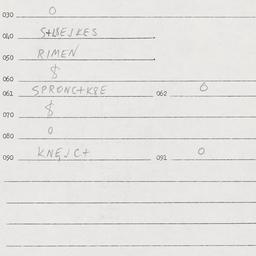 030 0
040 S+BEJKES
050 RIMEN
060 $
061 SPRONC+K8E 062 0
070 $
080 0
090 KNEJC+ 091 0